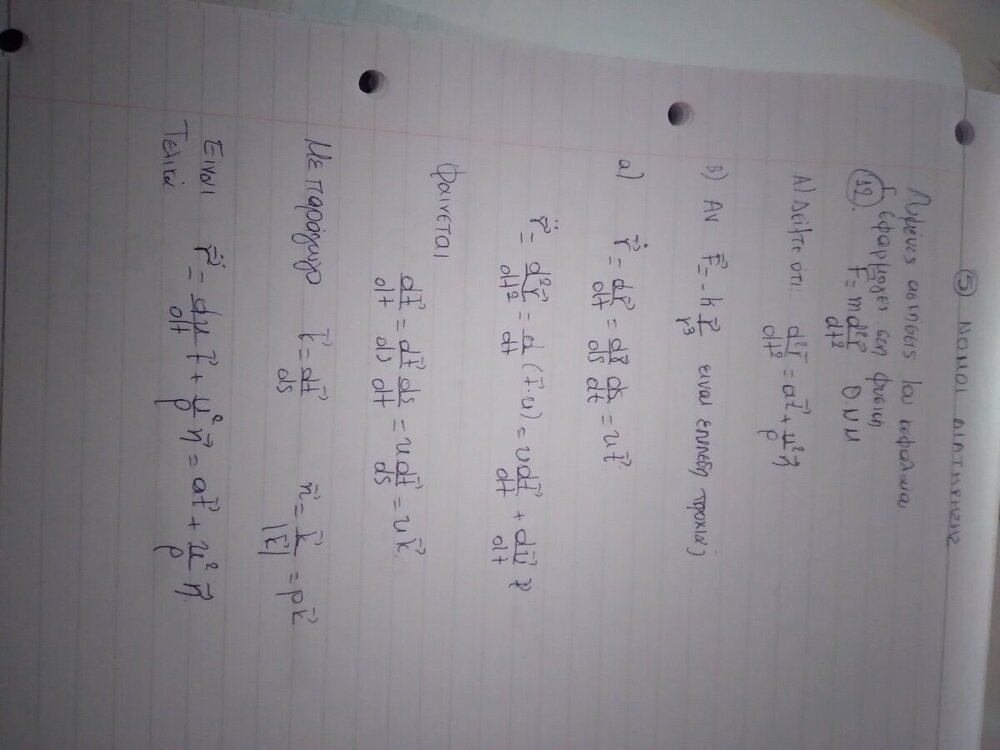 ⑤ ΝΟΜΟΙ ΔΙΑΤΗΡΗΣΗΣ
Λυμένες ασκήσεις 1ου κεφαλαιο
Εφαρμογές στη φυσικη
(12). F = m d²r⃗/dt² Θ.Ν.Μ
Α) Δείξτε οτι: d²r⃗/dt² = at⃗ + u²/ρ n⃗
Β) Αν F⃗ = k r⃗/r³ ειναι επιπεδη τροχια)
a) ṙ⃗ = dr⃗/dt = dr⃗/ds ds/dt = ut⃗
r̈⃗ = d²r⃗/dt² = d/dt (t⃗·u) = u dt⃗/dt + du/dt t⃗
φαινεται
dt⃗/dt = dt⃗/ds ds/dt = u dt⃗/ds = uk⃗
Με παράγωγο k⃗ = dt⃗/ds n⃗ = k⃗/|k⃗| = ρk⃗
Ειναι
Τελικά r̈⃗ = du/dt t⃗ + u²/ρ n⃗ = at⃗ + u²/ρ n⃗